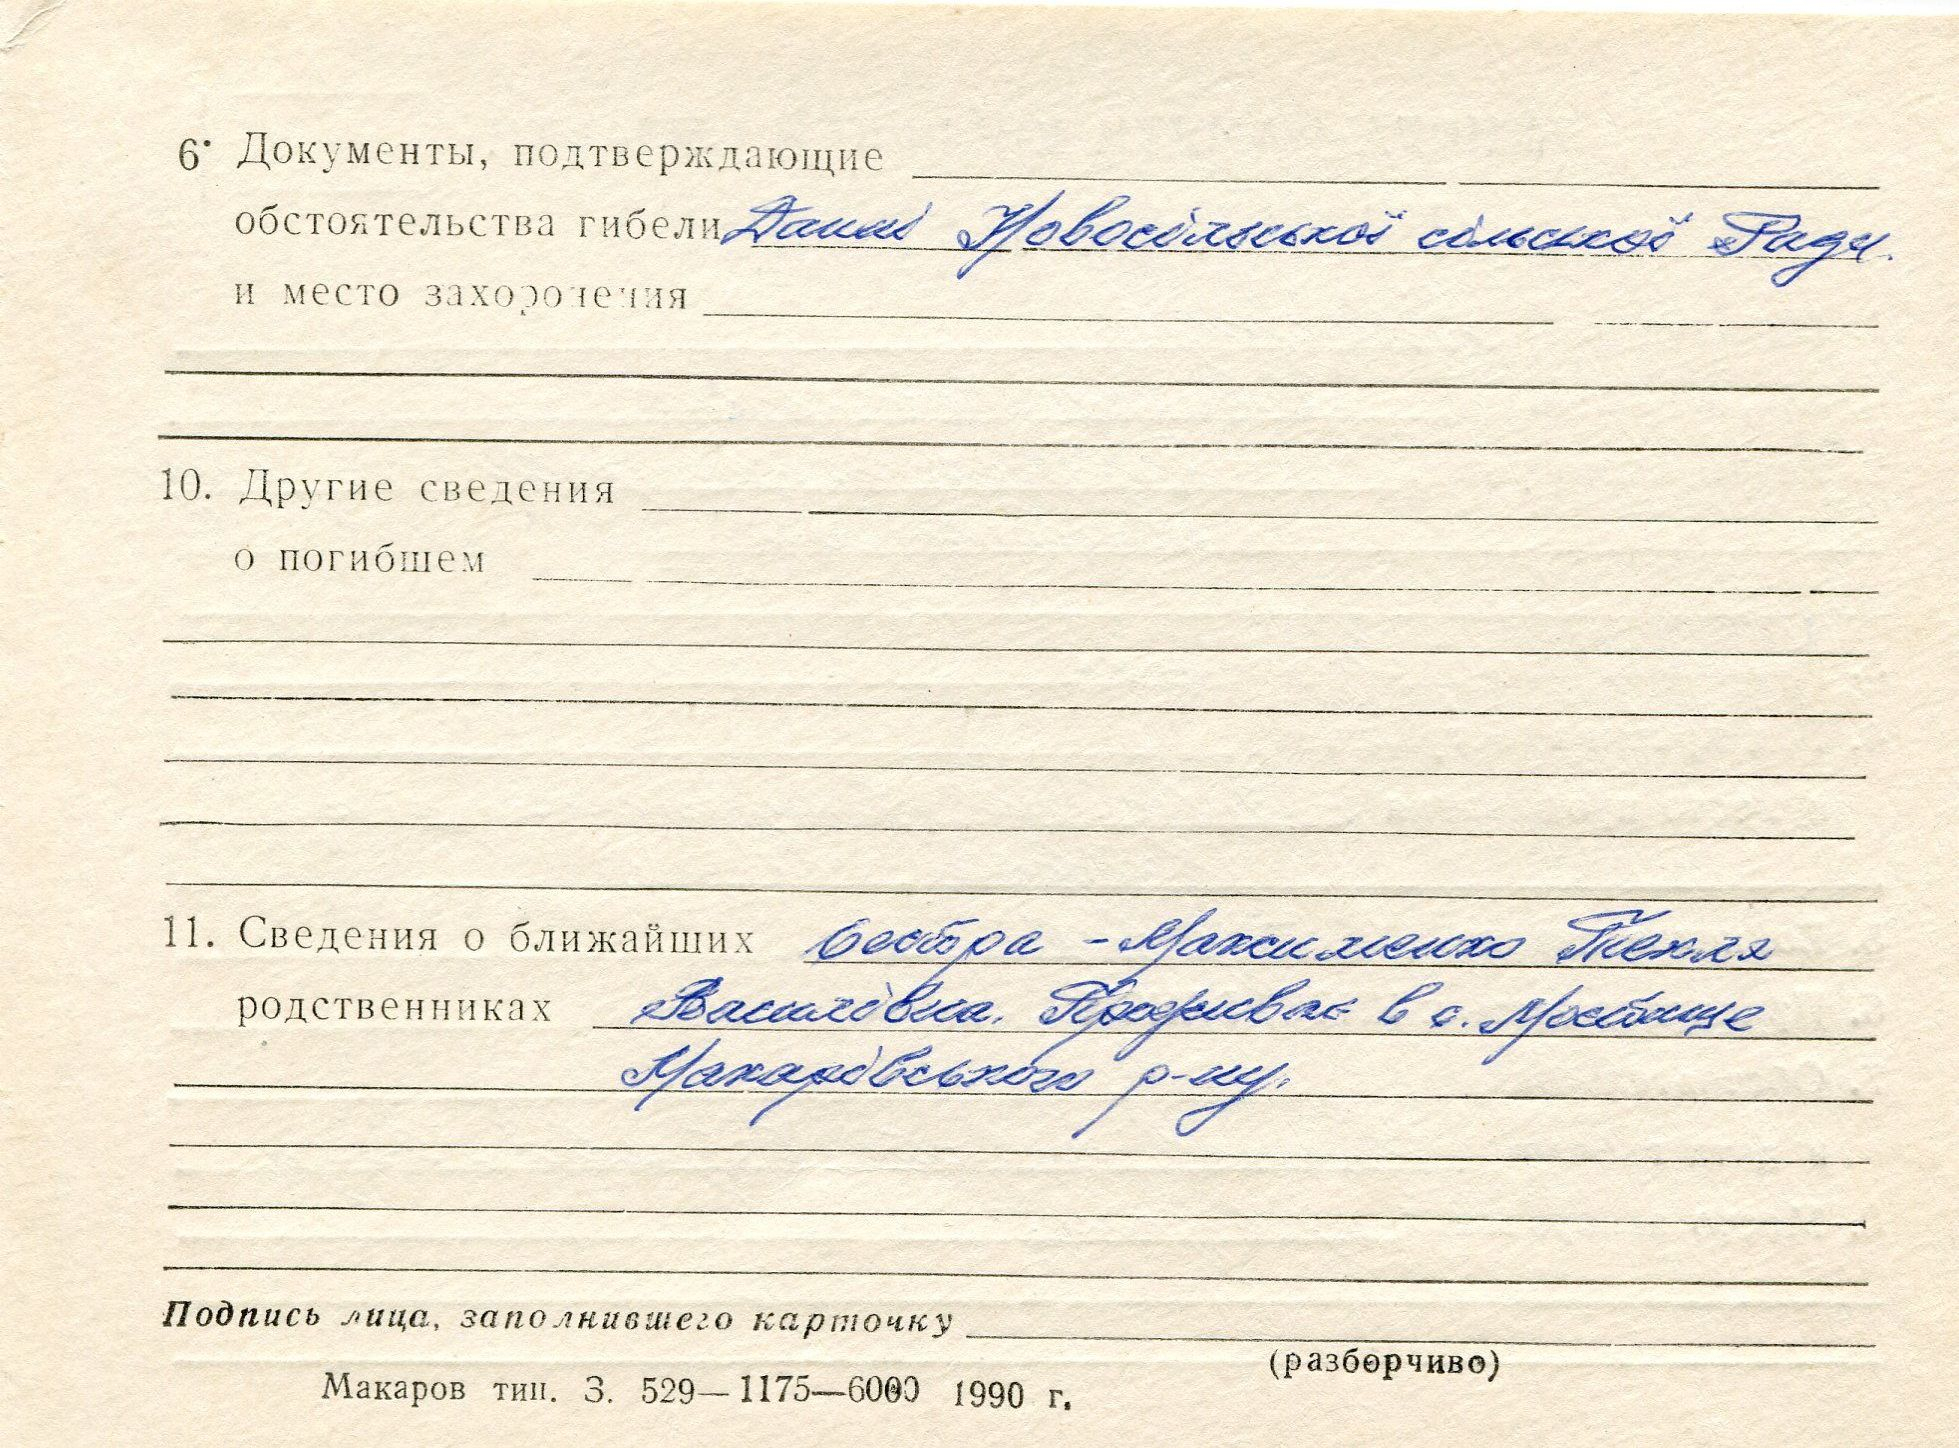 6. Документы, подтверждающие
обстоятельства гибели Данні Новосільської сільської Ради.
и место захоронения
10. Другие сведения
о погибшем
11. Сведения о ближайших Сестра - Максименко Текля
родственниках Василівна. Проживає в с. Мостище
Макарівського р-ну.
Подпись лица, заполнившего карточку
(разборчиво)
Макаров тип. З. 529—1175—6000 1990 г.